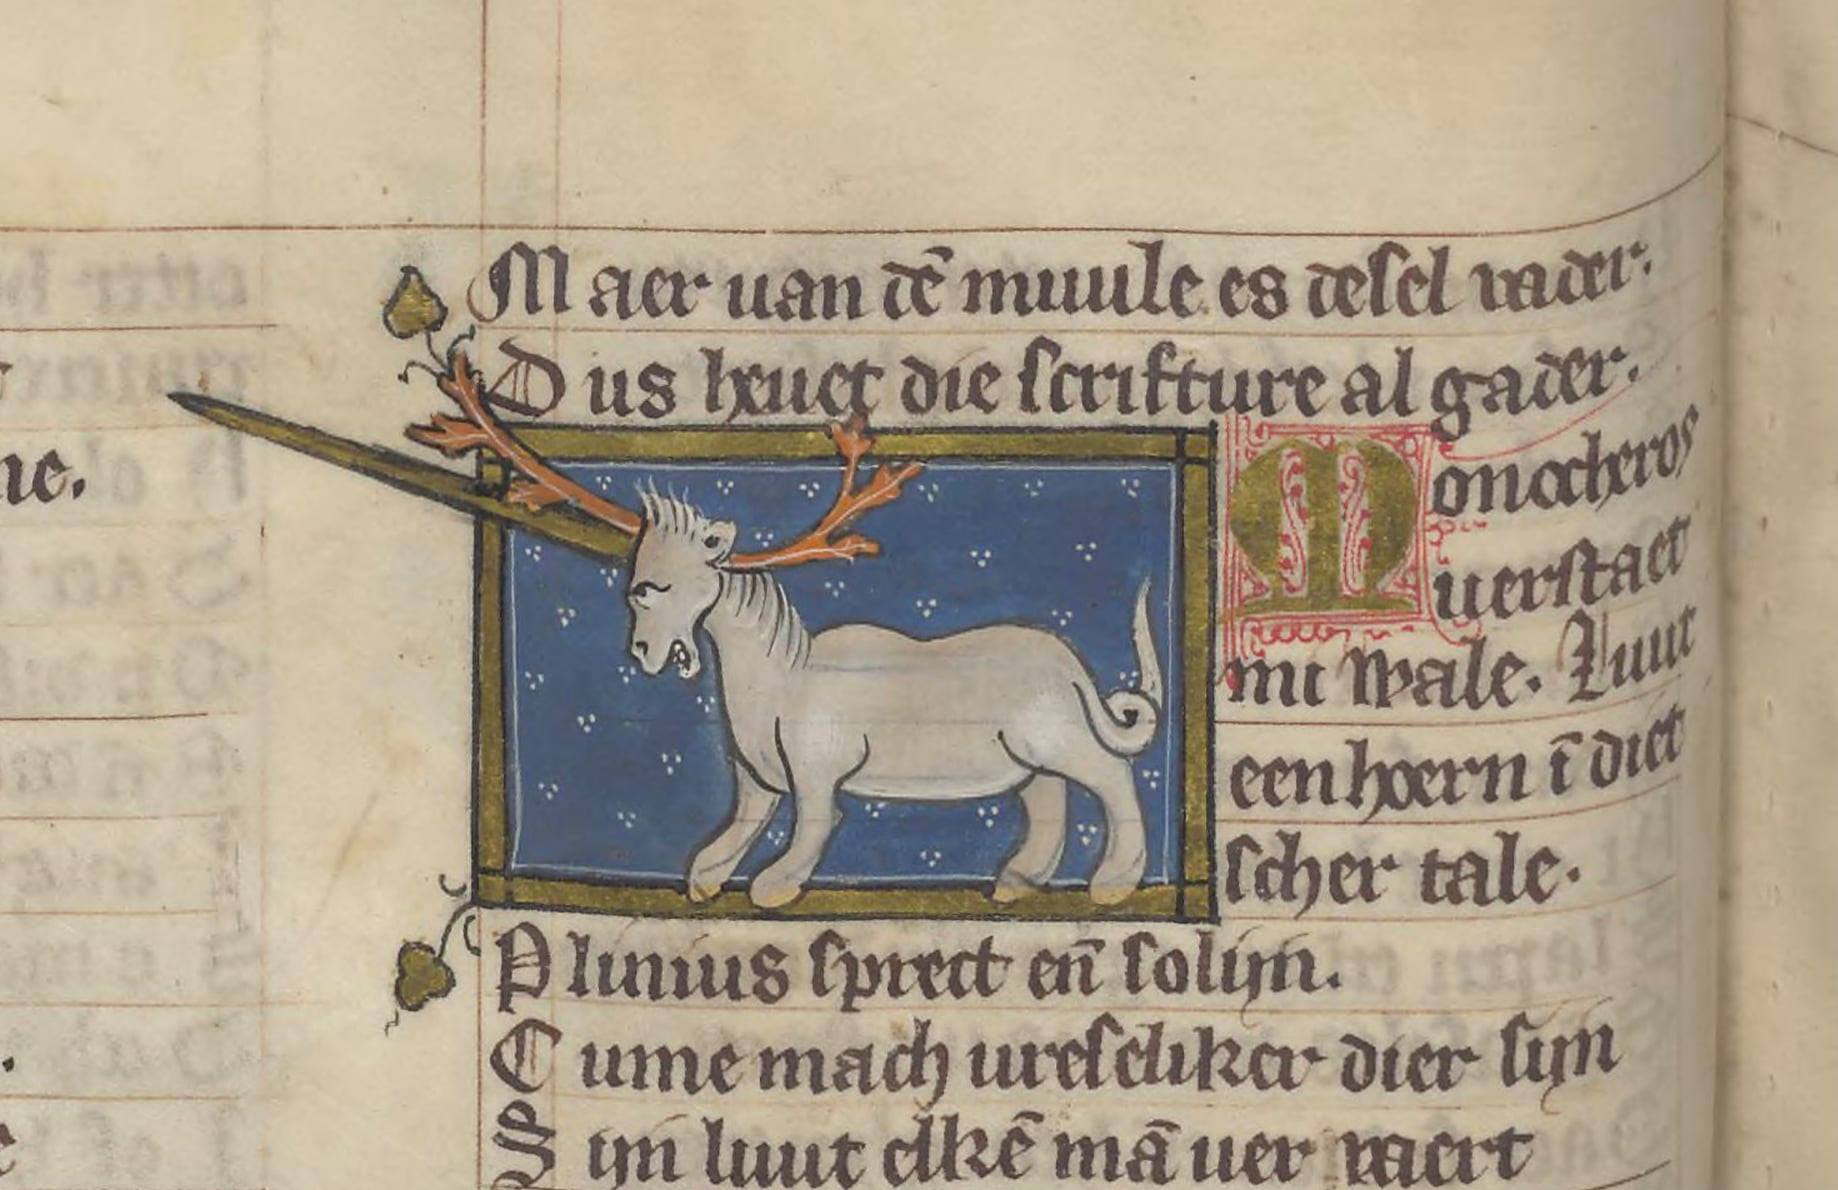 ne.
Maer uan dē muule es desel vader.
Dus heuet die scrifture al gader.
Monocheros
uerstaet
mi wale. Luut
een hoern ī diet
scher tale.
Plinius sprect en̄ solijn.
Cume mach vreseliker dier sijn
Sijn luut elkē mā uer vaert